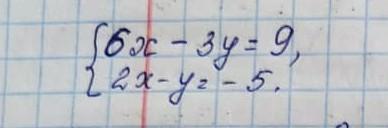 {6x - 3y = 9,
2x - y = - 5.